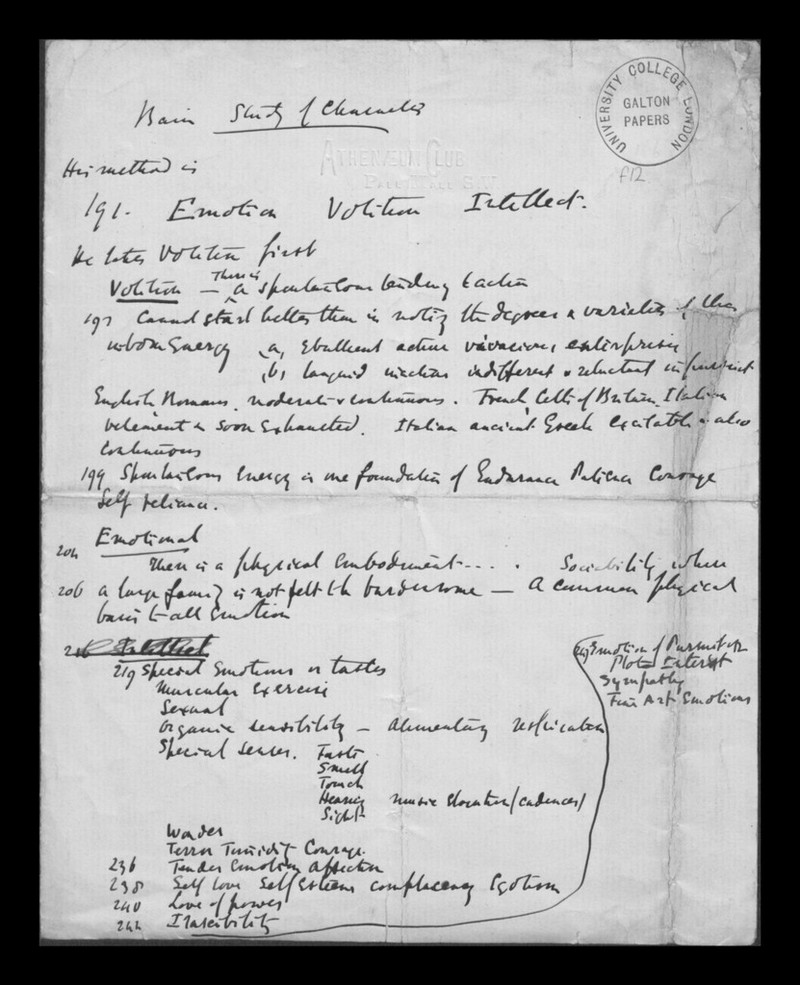 UNIVERSITY COLLEGE LONDON
GALTON
PAPERS
f12
ATHENÆUM CLUB
PALL MALL S.W.
Bain Study of Character
His method is
191. Emotion Volition Intellect.
He takes Volition first
Volition — There is a spontaneous tendency to action
197 Cannot start better than in noting the degrees & varieties of this
inborn Energy (a) ebullient active vivacious enterprising
(b) languid inactive indifferent & reluctant
English Romans, moderate & continuous. French Celts of Britain, Italian
vehement & soon exhausted. Italian ancient Greek excitable & also
continuous
199 Spontaneous Energy is one foundation of Endurance Patience Courage
Self reliance.
204 Emotional
There is a physical embodiment - - - . Sociability when
206 a large family is not felt to be burdensome — A common physical
basis to all Emotion
Intellect
219 Special Emotions or tastes
Muscular Exercise
Sexual
Organic sensibility — alimentary respiration
Special senses. Taste
Smell
Touch
Hearing music elocution (cadences)
Sight
Wonder
Terror Timidity Courage.
236 Tender Emotion Affection
238 Self love Self Esteem complacency Egotism
240 Love of power
244 Irascibility
Emotion of Pursuit or
Plot Interest
Sympathy
Fine Art Emotions